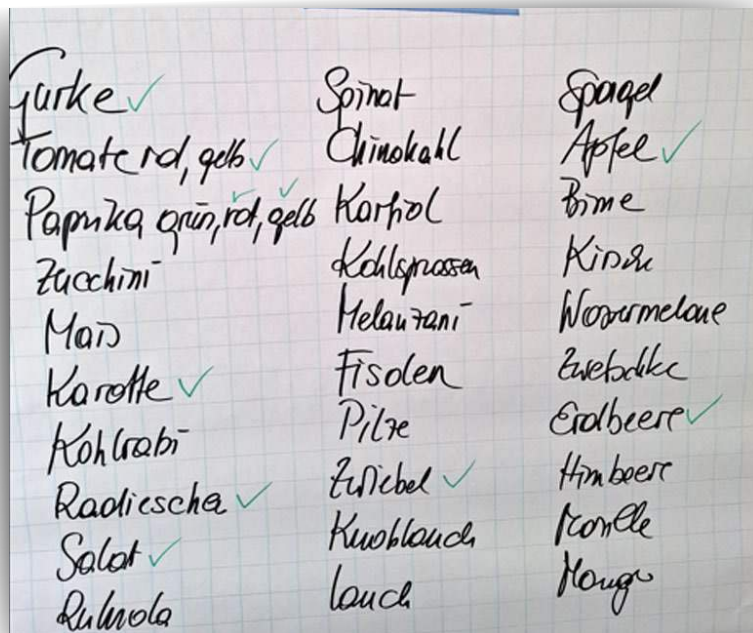 Gurke ✓
Tomate rot, gelb ✓
Paprika grün, rot, gelb ✓ ✓
Zucchini
Mais
Karotte ✓
Kohlrabi
Radieschen ✓
Salat ✓
Rukola
Spinat
Chinakohl
Karfiol
Kohlsprossen
Melanzani
Fisolen
Pilze
Zwiebel ✓
Knoblauch
Lauch
Spagel
Apfel ✓
Birne
Kirsche
Wassermelone
Zwetschke
Erdbeere ✓
Himbeere
Marille
Mango